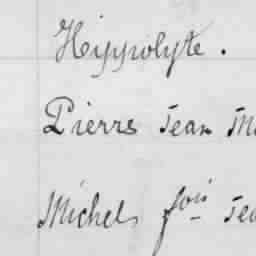 Hippolyte.
Pierre Jean M
Michel, fois Je